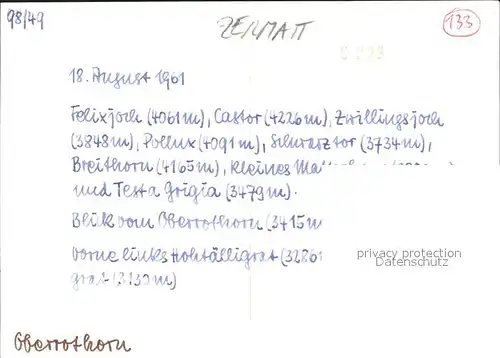 98/49
ZERMATT
133
18. August 1961
Felixjoch (4061m), Castor (4226m), Zwillingsjoch
(3848m), Pollux (4091m), Schwarztor (3734m),
Breithorn (4165m), kleines
und Testa Grigia (3479m).
Blick vom Oberrothorn (3415m
Vorne links Hohtälligrat (3286
grat (3135m)
privacy protection
Datenschutz
Oberrothorn